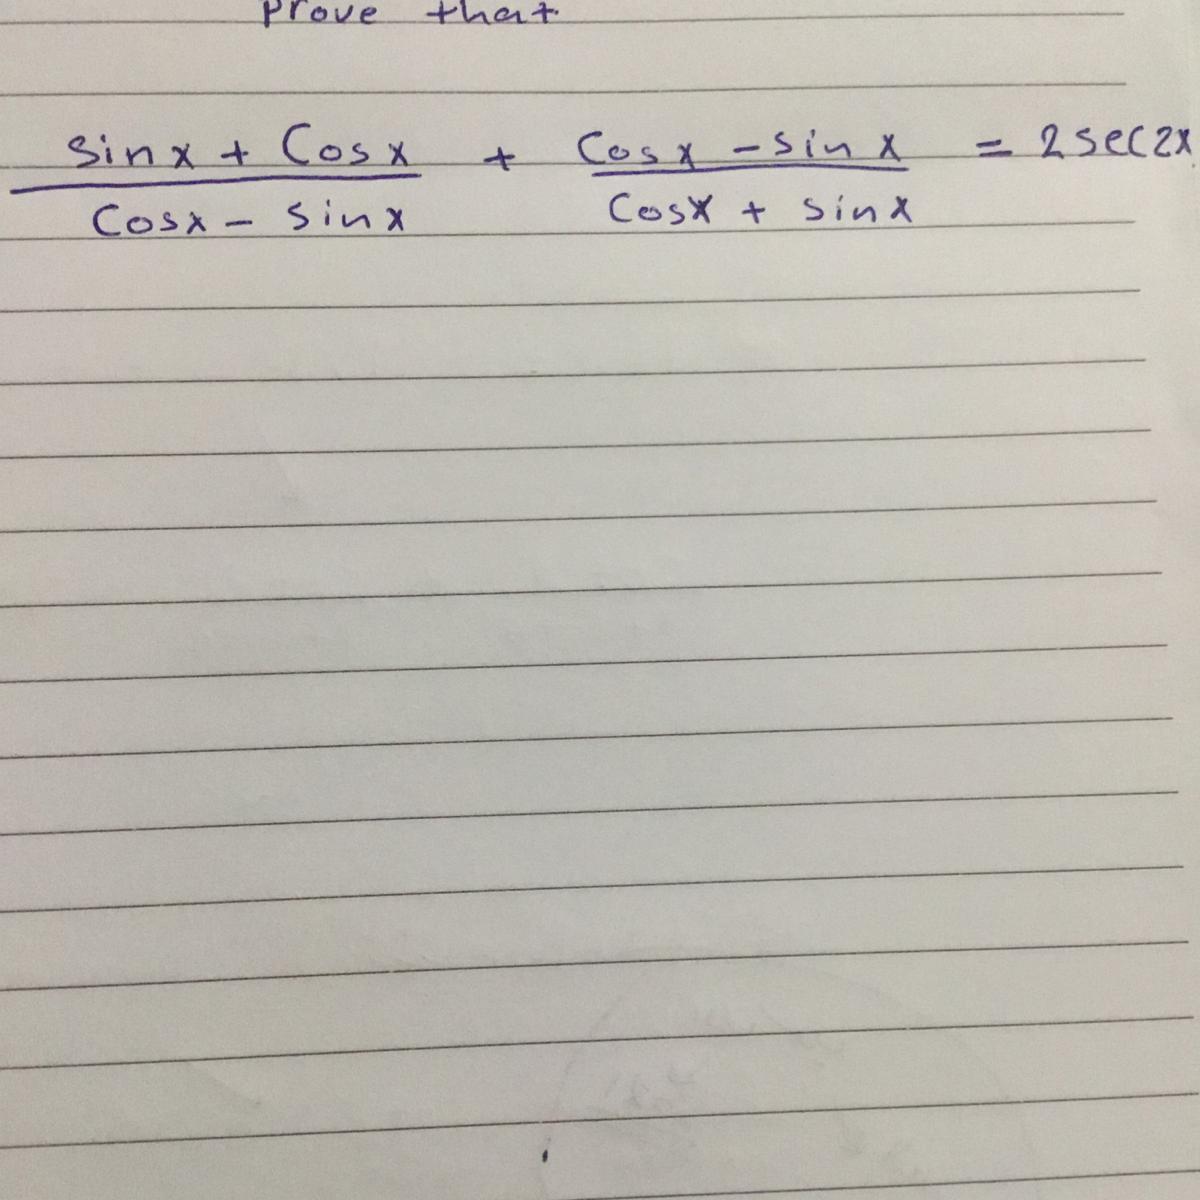 Prove that
sinx + Cosx / Cosx - sinx + Cosx - sinx / Cosx + sinx = 2sec2x